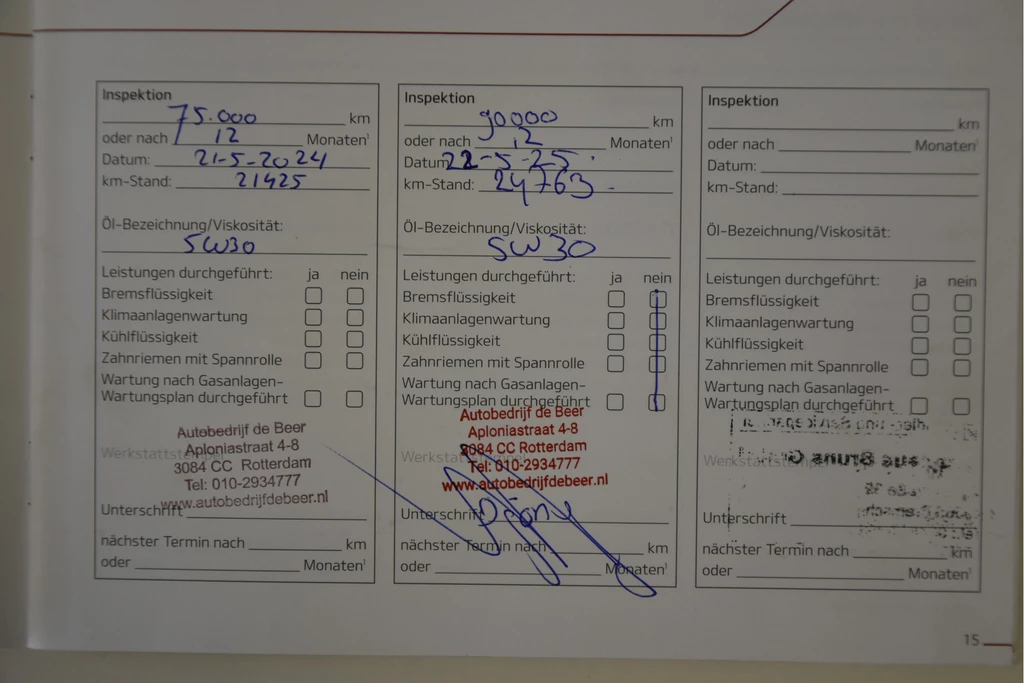 Inspektion
75.000 km
oder nach 12 Monaten¹
Datum: 21-5-2024
km-Stand: 21425
Öl-Bezeichnung/Viskosität:
5W30
Leistungen durchgeführt: ja nein
Bremsflüssigkeit
Klimaanlagenwartung
Kühlflüssigkeit
Zahnriemen mit Spannrolle
Wartung nach Gasanlagen-
Wartungsplan durchgeführt
Autobedrijf de Beer
Aploniastraat 4-8
Werkstattstempel
3084 CC Rotterdam
Tel: 010-2934777
www.autobedrijfdebeer.nl
Unterschrift
nächster Termin nach km
oder Monaten¹
Inspektion
90000 km
oder nach 12 Monaten¹
Datum 22-5-25
km-Stand: 24763
Öl-Bezeichnung/Viskosität:
5W30
Leistungen durchgeführt: ja nein
Bremsflüssigkeit
Klimaanlagenwartung
Kühlflüssigkeit
Zahnriemen mit Spannrolle
Wartung nach Gasanlagen-
Wartungsplan durchgeführt
Autobedrijf de Beer
Aploniastraat 4-8
3084 CC Rotterdam
Werkstattstempel
Tel: 010-2934777
www.autobedrijfdebeer.nl
Unterschrift
nächster Termin nach km
oder Monaten¹
Inspektion
km
oder nach Monaten¹
Datum:
km-Stand:
Öl-Bezeichnung/Viskosität:
Leistungen durchgeführt: ja nein
Bremsflüssigkeit
Klimaanlagenwartung
Kühlflüssigkeit
Zahnriemen mit Spannrolle
Wartung nach Gasanlagen-
Wartungsplan durchgeführt
Werkstattstempel
Unterschrift
nächster Termin nach km
oder Monaten¹
15